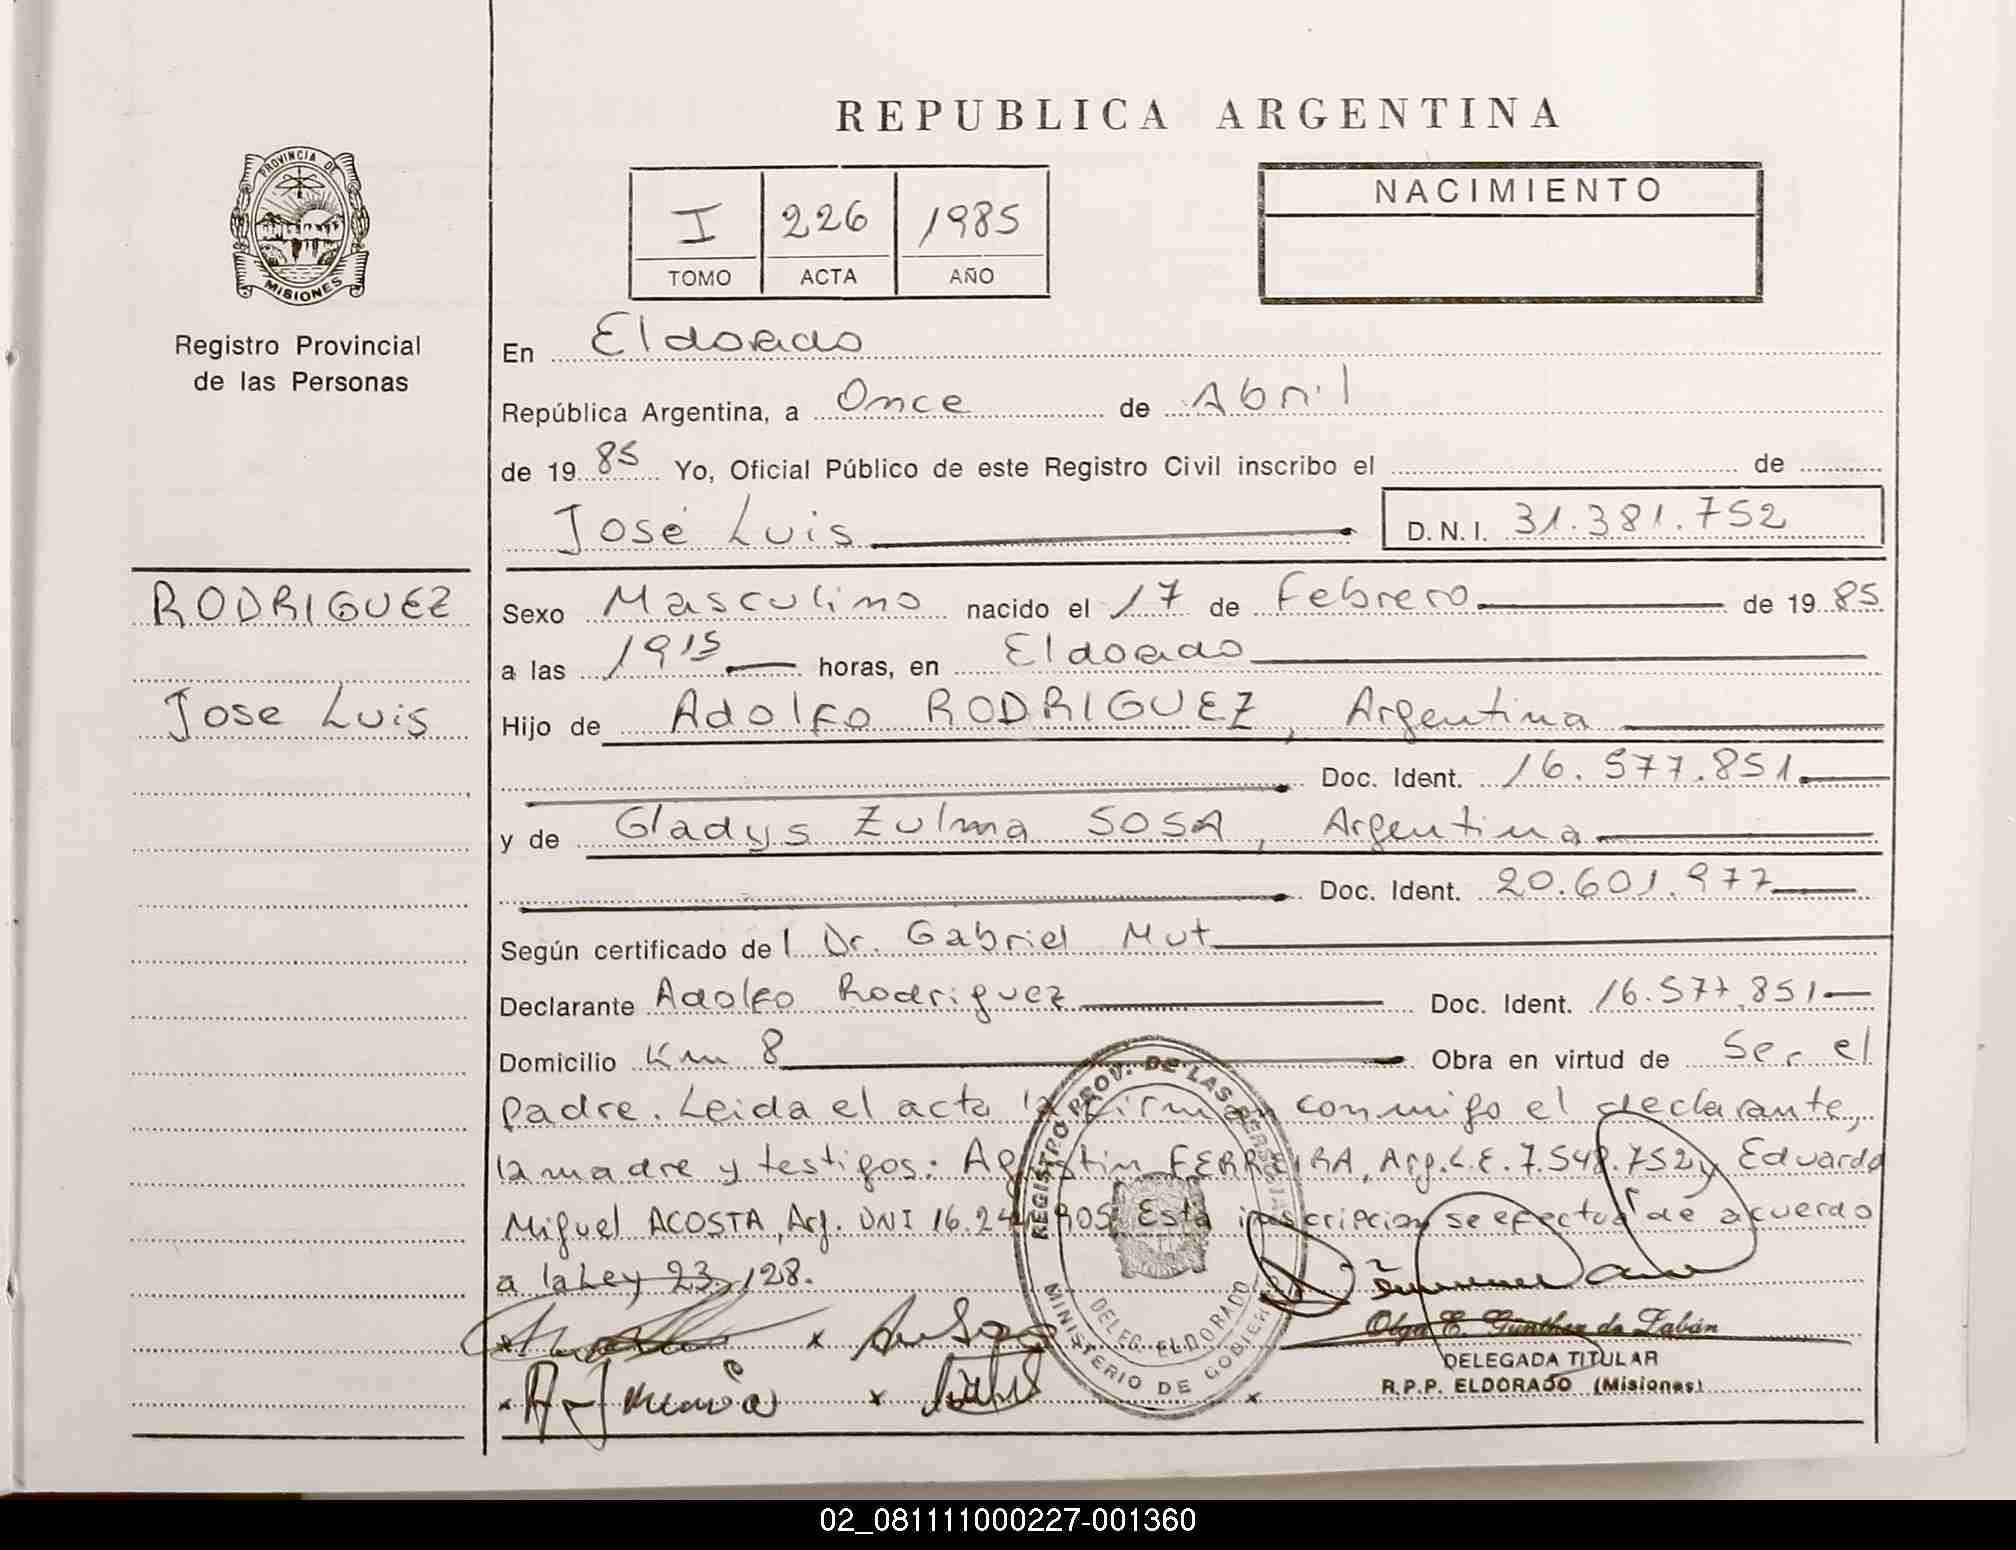 REPUBLICA ARGENTINA
PROVINCIA DE
MISIONES
Registro Provincial
de las Personas
I 226 1985
TOMO ACTA AÑO
NACIMIENTO
En Eldorado
República Argentina, a Once de Abril
de 19 85 Yo, Oficial Público de este Registro Civil inscribo el de
José Luis D.N.I. 31.381.752
RODRIGUEZ
Jose Luis
Sexo Masculino nacido el 17 de Febrero de 19 85
a las 1915 horas, en Eldorado
Hijo de Adolfo RODRIGUEZ, Argentina
Doc. Ident. 16.577.851
y de Gladys Zulma SOSA, Argentina
Doc. Ident. 20.601.977
Según certificado de l Dr. Gabriel Mut
Declarante Adolfo Rodriguez Doc. Ident. 16.577.851
Domicilio Km 8 Obra en virtud de Ser el
padre. Leida el acta la firman conmigo el declarante,
la madre y testigos: Agustin FERREIRA, Arg. L.E. 7.548.752 y Eduardo
Miguel ACOSTA, Arg. DNI Esta inscripcion se efectua de acuerdo
a la Ley 23.128.
REGISTRO PROV. DE LAS PERSONAS
MINISTERIO DE GOBIERNO
DELEG. ELDORADO
Olga E. Gunther de Zabán
DELEGADA TITULAR
R.P.P. ELDORADO (Misiones)
02_081111000227-001360